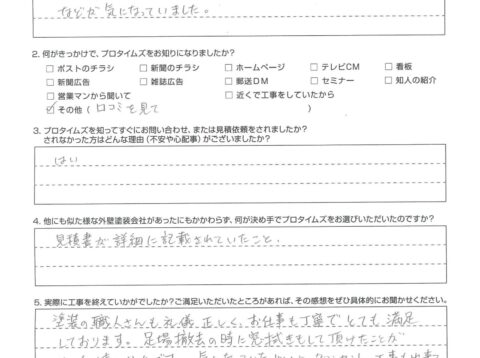 などが気になっていました。
2. 何がきっかけで、プロタイムズをお知りになりましたか?
□ ポストのチラシ □ 新聞のチラシ □ ホームページ □ テレビCM □ 看板
□ 新聞広告 □ 雑誌広告 □ 郵送DM □ セミナー □ 知人の紹介
□ 営業マンから聞いて □ 近くで工事をしていたから
☑ その他 ( 口コミを見て )
3. プロタイムズを知ってすぐにお問い合わせ、または見積依頼をされましたか?
されなかった方はどんな理由(不安や心配事)がございましたか?
はい
4. 他にも似た様な外壁塗装会社があったにもかかわらず、何が決め手でプロタイムズをお選びいただいたのですか?
見積書が詳細に記載されていたこと.
5. 実際に工事を終えていかがでしたか?ご満足いただいたところがあれば、その感想をぜひ具体的にお聞かせください。
塗装の職人さんも礼儀正しく、お仕事も丁寧でとても満足
しております。足場撤去の時に窓拭きもして頂けたことが